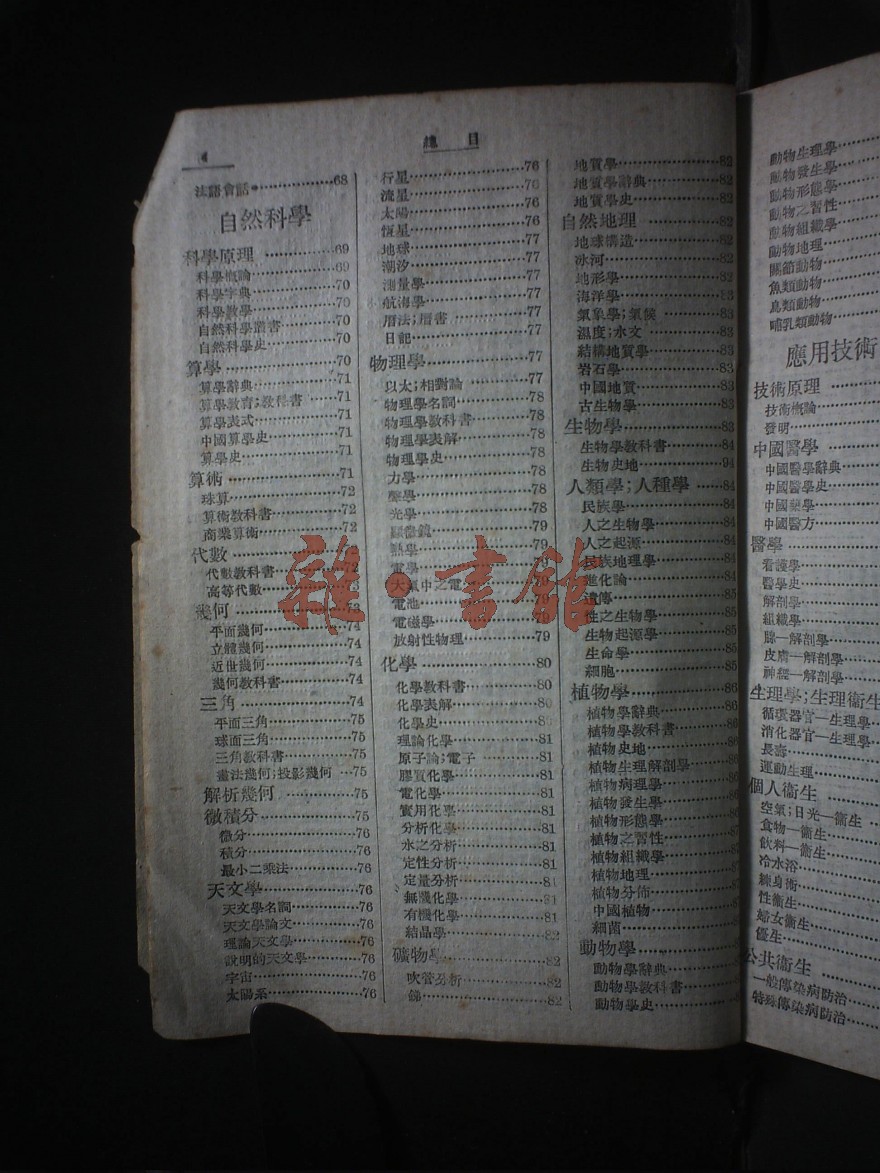 4
總目
法語會話 68
自然科學
科學原理 69
科學概論 69
科學字典 70
科學教學 70
自然科學叢書 70
自然科學史 70
算學 70
算學辭典 71
算學教育;教科書 71
算學表式 71
中國算學史 71
算學史 71
算術 71
珠算 72
算術教科書 72
商業算術 72
代數
代數教科書 72
高等代數 73
幾何 73
平面幾何 74
立體幾何 74
近世幾何 74
幾何教科書 74
三角 74
平面三角 75
球面三角 75
三角教科書 75
畫法幾何;投影幾何 75
解析幾何 75
微積分 75
微分 76
積分 76
最小二乘法 76
天文學 76
天文學名詞 76
天文學論文 76
理論天文學 76
說明的天文學 76
宇宙 76
太陽系 76
行星 76
流星 76
太陽 76
恆星 76
地球 77
潮汐 77
測量學 77
航海學 77
曆法;曆書 77
日記 77
物理學 77
以太;相對論 77
物理學名詞 78
物理學教科書 78
物理學表解 78
物理學史 78
力學 78
聲學 78
光學 78
顯微鏡 79
熱學 79
電學 79
大氣中之電 79
電池 79
電磁學 79
放射性物理 79
化學 80
化學教科書 80
化學表解 80
化學史 80
理論化學 81
原子論;電子 81
膠質化學 81
電化學 81
實用化學 81
分析化學 81
水之分析 81
定性分析 81
定量分析 81
無機化學 81
有機化學 81
結晶學 82
礦物學 82
吹管分析 82
銻 82
地質學 82
地質學辭典 82
地質學史 82
自然地理 82
地球構造 82
冰河 82
地形學 82
海洋學 83
氣象學;氣候 83
濕度;水文 83
結構地質學 83
岩石學 83
中國地質 83
古生物學 83
生物學 83
生物學教科書 84
生物史地 94
人類學;人種學 84
民族學 84
人之生物學 84
人之起源 84
民族地理學 84
進化論 84
遺傳 85
性之生物學 85
生物起源學 85
生命學 85
細胞 85
植物學 86
植物學辭典 86
植物學教科書 86
植物史地 86
植物生理解剖學
植物病理學
植物發生學
植物形態學
植物之習性
植物組織學
植物地理
植物分佈
中國植物
細菌
動物學
動物學辭典
動物學教科書
動物學史
動物生理學
動物發生學
動物形態學
動物之習性
動物組織學
動物地理
關節動物
魚類動物
鳥類動物
哺乳類動物
應用技術
技術原理
技術概論
發明
中國醫學
中國醫學辭典
中國醫學史
中國藥學
中國醫方
醫學
看護學
醫學史
解剖學
組織學
腺—解剖學
皮膚—解剖學
神經—解剖學
生理學;生理衛生
循環器官—生理學
消化器官—生理學
長壽
運動生理
個人衞生
空氣;日光—衞生
食物—衞生
飲料—衞生
冷水浴
練身術
性衞生
婦女衞生
優生
公共衞生
一般傳染病防治
特殊傳染病防治
雜·書館